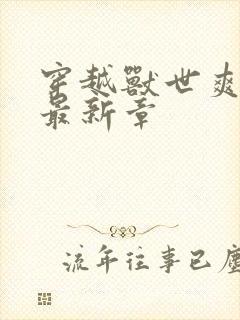 穿越獸世爽
最新章
流年往事已塵